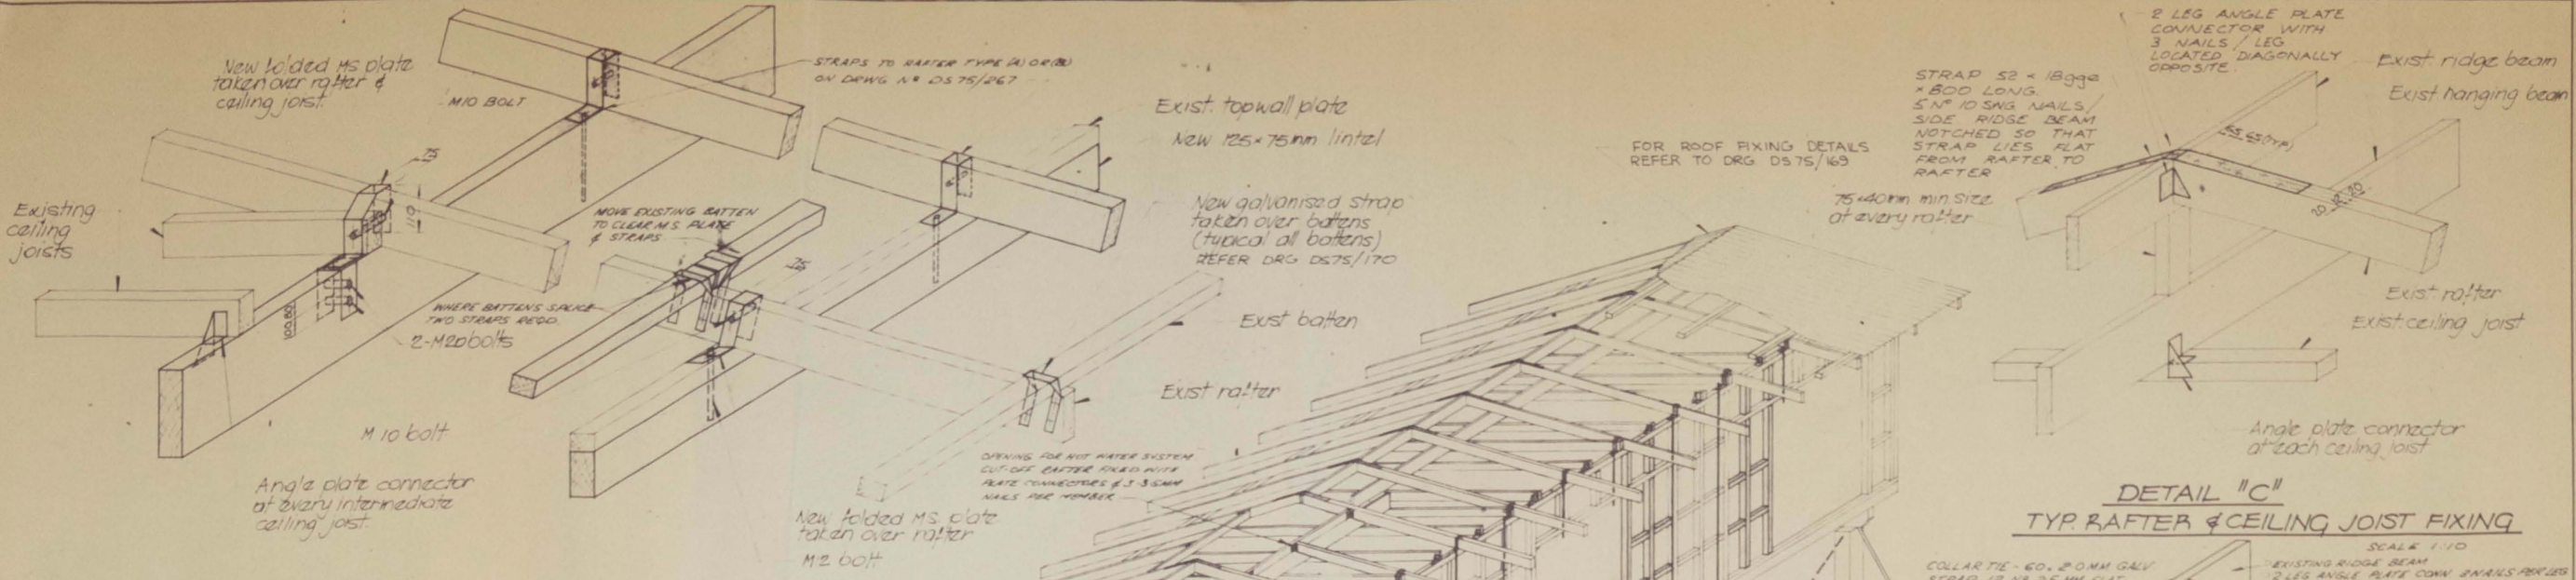 New folded MS plate
taken over rafter &
ceiling joist.
M10 BOLT
STRAPS TO RAFTER TYPE (A) OR (B)
ON DRWG Nº DS 75/267
75
110
Existing
ceiling
joists
MOVE EXISTING BATTEN
TO CLEAR M.S. PLATE
& STRAPS
75
WHERE BATTENS SPLICE
TWO STRAPS REQD.
2-M20 bolts
M 10 bolt
Angle plate connector
at every intermediate
ceiling joist.
Exist. top wall plate
New 125 x 75mm lintel
New galvanised strap
taken over battens
(typical all battens)
REFER DRG DS75/170
Exist batten
Exist rafter
OPENING FOR HOT WATER SYSTEM
CUT-OFF RAFTER FIXED WITH
PLATE CONNECTORS & 3-3.5MM
NAILS PER MEMBER
New folded MS. plate
taken over rafter
M12 bolt
FOR ROOF FIXING DETAILS
REFER TO DRG DS 75/169
STRAP 52 x 18gge
x 800 LONG.
5 Nº 10 SWG NAILS/
SIDE RIDGE BEAM
NOTCHED SO THAT
STRAP LIES FLAT
FROM RAFTER TO
RAFTER
75x40mm min. size
at every rafter
2 LEG ANGLE PLATE
CONNECTOR WITH
3 NAILS / LEG
LOCATED DIAGONALLY
OPPOSITE.
Exist. ridge beam
Exist hanging beam
Exist. rafter
Exist. ceiling joist
Angle plate connector
at each ceiling joist
DETAIL "C"
TYP. RAFTER & CEILING JOIST FIXING
SCALE 1:10
COLLAR TIE - 60 x 2.0MM GALV
EXISTING RIDGE BEAM
2 LEG ANGLE PLATE CONN. 2 NAILS PER LEG